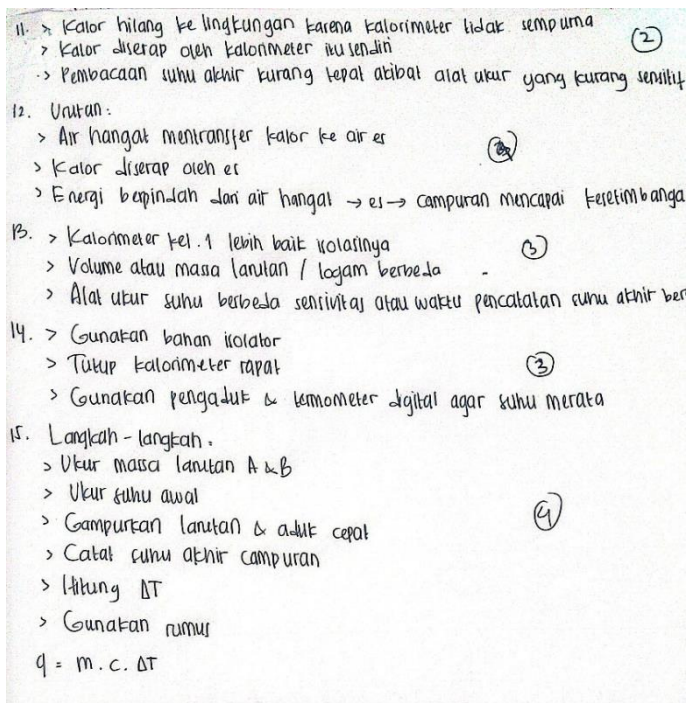 11. > Kalor hilang ke lingkungan karena kalorimeter tidak sempurna
> Kalor diserap oleh kalorimeter itu sendiri
②
> Pembacaan suhu akhir kurang tepat akibat alat ukur yang kurang sensitif
12. Urutan :
> Air hangat mentransfer kalor ke air es
> Kalor diserap oleh es
> Energi berpindah dari air hangat → es → campuran mencapai kesetimbanga
13. > Kalorimeter kel. 1 lebih baik isolasinya
③
> Volume atau massa larutan / logam berbeda
> Alat ukur suhu berbeda sensivitas atau waktu pencatatan suhu akhir ber
14. > Gunakan bahan isolator
> Tutup kalorimeter rapat
③
> Gunakan pengaduk & termometer digital agar suhu merata
15. Langkah - langkah :
> Ukur massa larutan A & B
> Ukur suhu awal
> Campurkan larutan & aduk cepat
④
> Catat suhu akhir campuran
> Hitung ΔT
> Gunakan rumus
q = m . c . ΔT